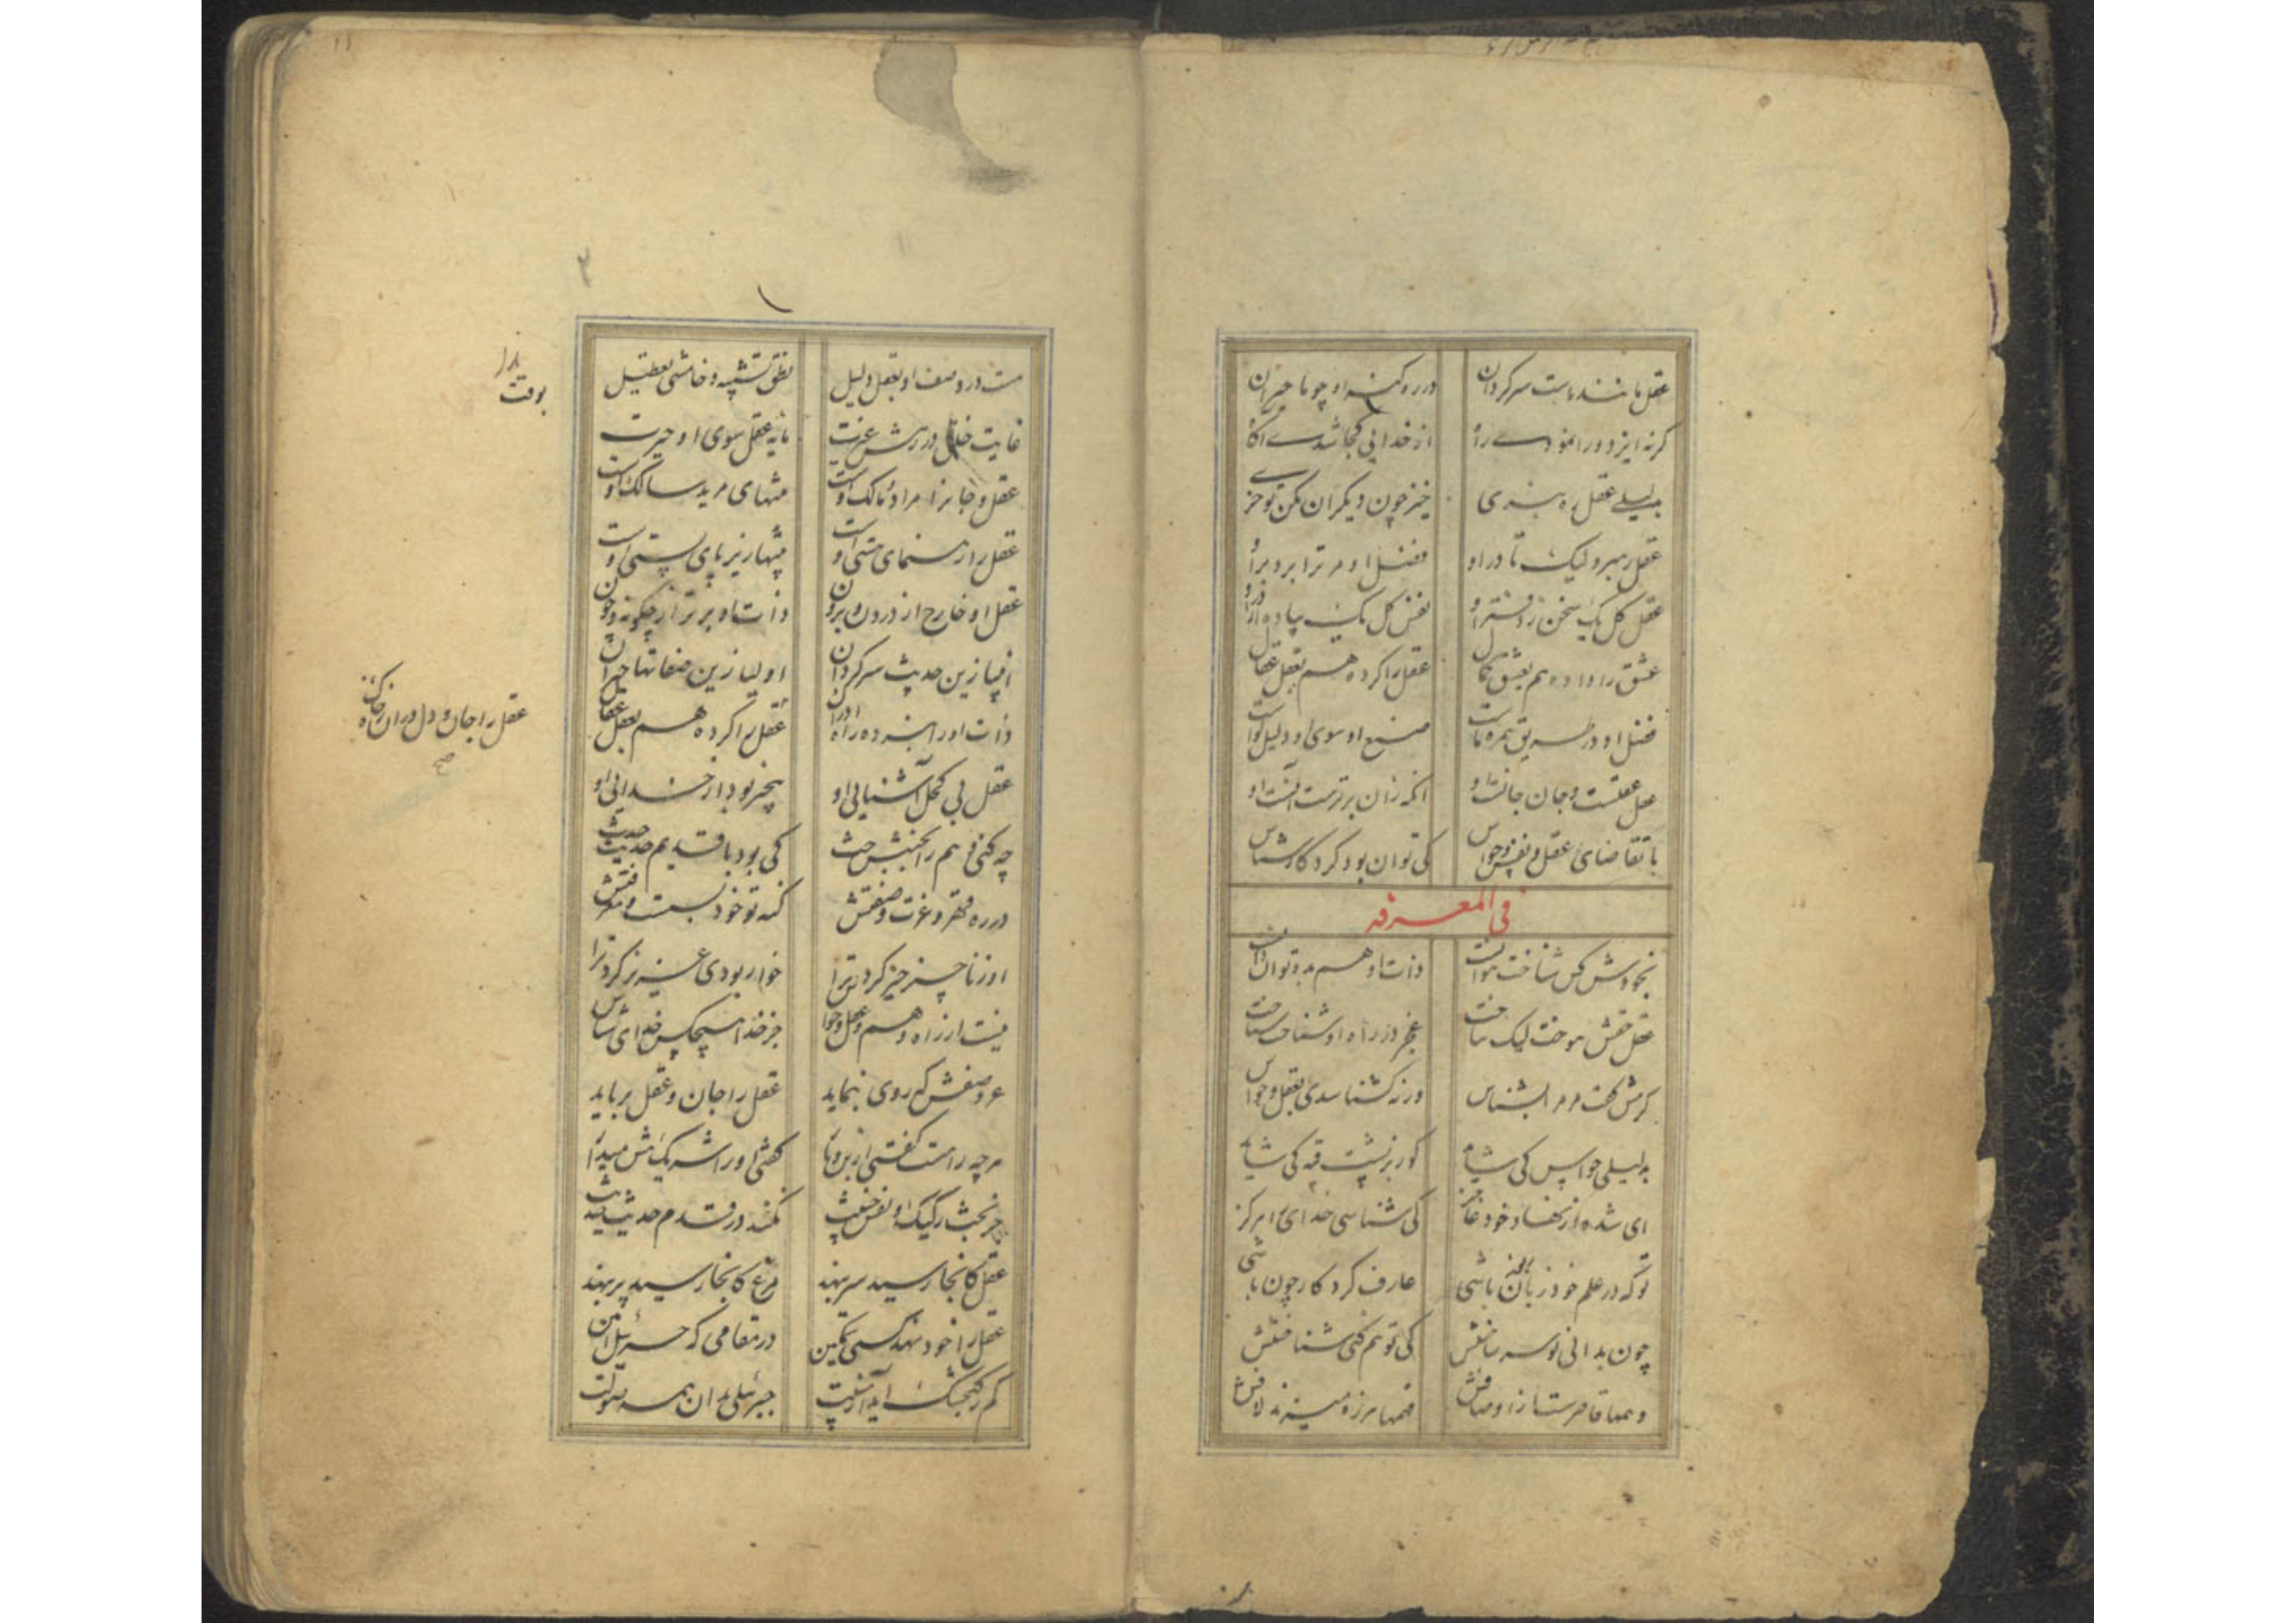 عقل مانند ماست سرکردان در ره کنه او چو ما حیران
کرنه ایزد ورا نمودی راه از خدایی کجا شدی آکاه
بدلیلی عقل ره نبری خیره چون دیکران مکن تو خری
عقل رهبر ولیک تا در او فضل او مر ترا برد بر او
عقل کل یک سخن ز دفتر او نفس کل یک پیاده از در او
عشق را داده هم بعشق کمال عقل را کرده هم بعقل عقال
فضل او در طریق رهبر ماست صنع او سوی او دلیل کواست
عقل عقلست و جان جانست او آنکه زان برترست آنست او
با تقاضای عقل و نفس و حواس کی توان بود کردکار شناس
فی المعرفه
بخودش کس شناخت نتوانست ذات او هم بدو توان دانست
عقل حقش بتوخت نیک بتاخت عجز در راه او شناخت شناخت
کرمش کفت مر مرا بشناس ورنه کشناسدی بعقل و حواس
بدلیلی حواس کی شاید کوز بر پشت قبه کی شاید
ای شده از نهاد خود عاجز کی شناسی خدای را هرکز
تو که در علم خود زبون باشی عارف کردکار چون باشی
چون ندانی تو سر ساختنش کی توهم کنی شناختنش
وهمها قاصرست ز اوصافش فهمها هرزه میزند لافش
هست در وصف او بعقل دلیل نطق تشبیه و خامشی تعطیل
غایت خلق در رهش غیرت مایه عقل سوی او حیرت
عقل و جانرا مراد و مالک اوست منتهای مرید سالک اوست
عقل را رهنمای هستی اوست هستها زیر پای پستی اوست
عقل او خارج از درون و برون ذات او برتر از چکونه و چون
انبیا زین حدیث سرکردان اولیا زین صفاتها حیران
ذات او را نبرده راه ادراک عقل را کرده هم بعقل عقال
عقل را جان و دل در ان ره خاک
عقل بی کحل آشنایی او بیخبر بود از خدایی او
چه کنی وهم را بخبثش حث کی بود با قدیم حدیث حدث
در ره قهر و عزت و صفتش کنه تو خود بست و معرفتش
او ز ناچیز چیز کرد ترا خوار بودی عزیز کرد ترا
نیست از راه وهم و عقل و حواس جز خدا هیچکس خدای شناس
عز وصفش که روی بنماید عقل را جان و عقل برباید
هرچه را هست کفتی از بن و بار کفتی او را شریک هش میدار
جز بخبث رکیک و نفس خبیث نکند در قدم حدیث حدیث
عقل کانجا رسید سر بنهد مرغ کانجا رسید پر بنهد
عقل را خود نهد کسی تمکین در مقامی که جبرئیل امین
کم ز کنجشک آید از هیبت جبرئیلی بدان همه صولت